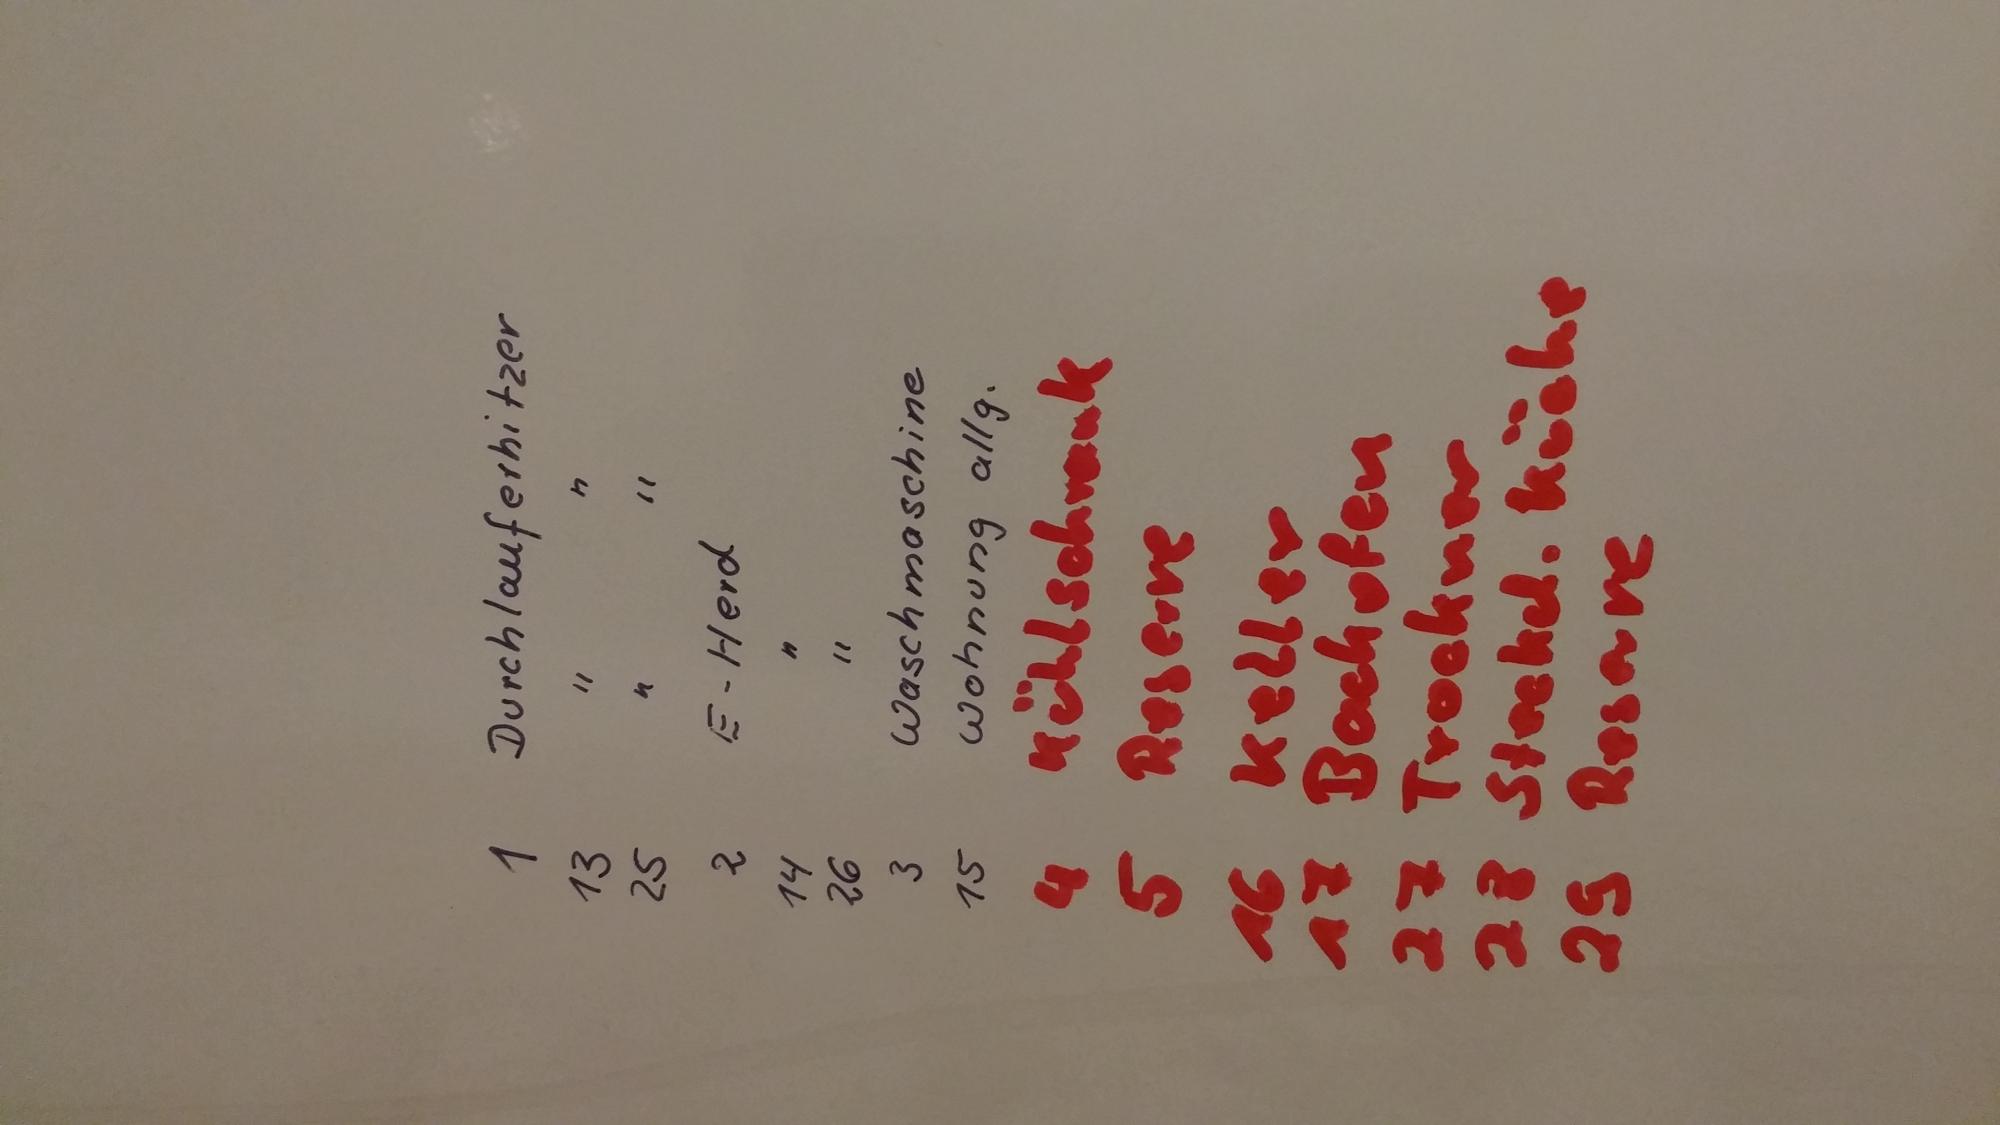 1 Durchlauferhitzer
13 " "
25 " "
2 E-Herd
14 "
26 "
3 Waschmaschine
15 Wohnung allg.
4 Kühlschrank
5 Reserve
16 Keller
17 Backofen
27 Trockner
28 Steckd. Küche
29 Reserve